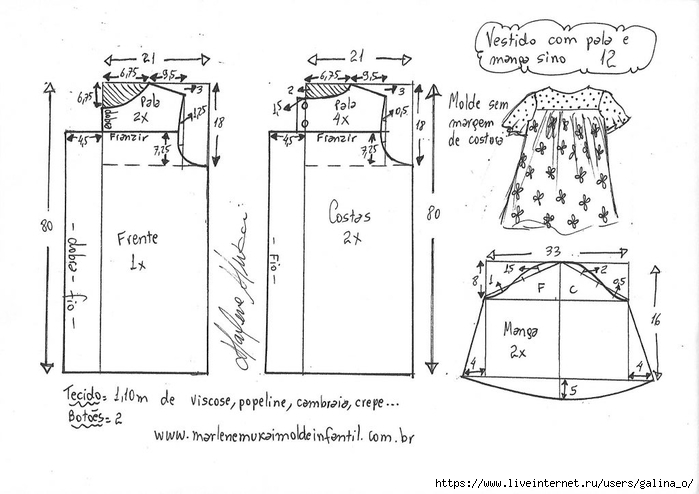 Vestido com pala e
manga sino 12
21
6,75
9,5
3
6,75
Pala
2x
1,25
18
dobra
Franzir
4,5
7,25
80
Frente
1x
- dobra - fio -
21
6,75
9,5
2
3
1,5
Pala
4x
0,5
18
Franzir
4,5
7,25
80
Costas
2x
- Fio -
Molde sem
margem
de costura
33
1,5
2
1
0,5
8
F C
16
Manga
2x
4
4
5
Tecido= 1,10m de viscose, popeline, cambraia, crepe...
Botões= 2
www.marlenemukaimoldeinfantil.com.br
Marlene Mukai
https://www.liveinternet.ru/users/galina_o/